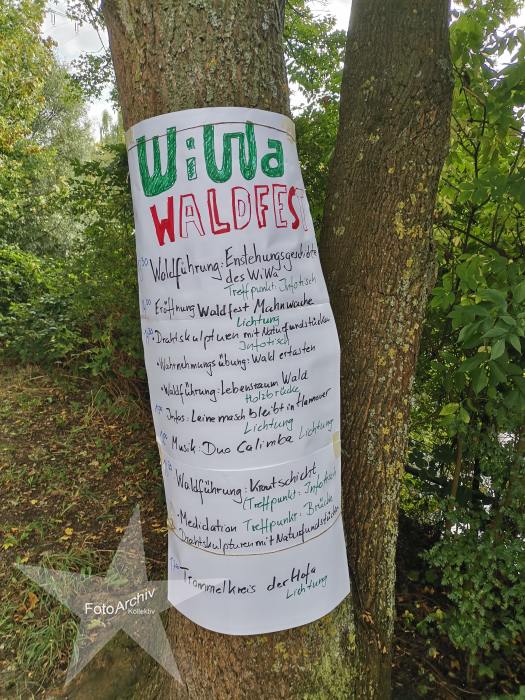 WiWa
WALDFEST
Waldführung: Enstehungsgeschichte
des WiWa
Treffpunkt: Infotisch
Eröffnung Waldfest Mahnwache
Lichtung
• Drahtskulpturen mit Naturfundstücken
Infotisch
• Wahrnehmungsübung: Wald ertasten
• Waldführung: Lebensraum Wald
Holzbrücke
Infos: Leinemasch bleibt in Hannover
Lichtung
Musik: Duo Calimba Lichtung
Waldführung: Krautschicht
(Treffpunkt: Infotisch
• Medidation Treffpunkt: Brücke
Drahtskulpturen mit Naturfundstücken
Trommelkreis der Hofa
Lichtung
FotoArchiv
Kollektiv